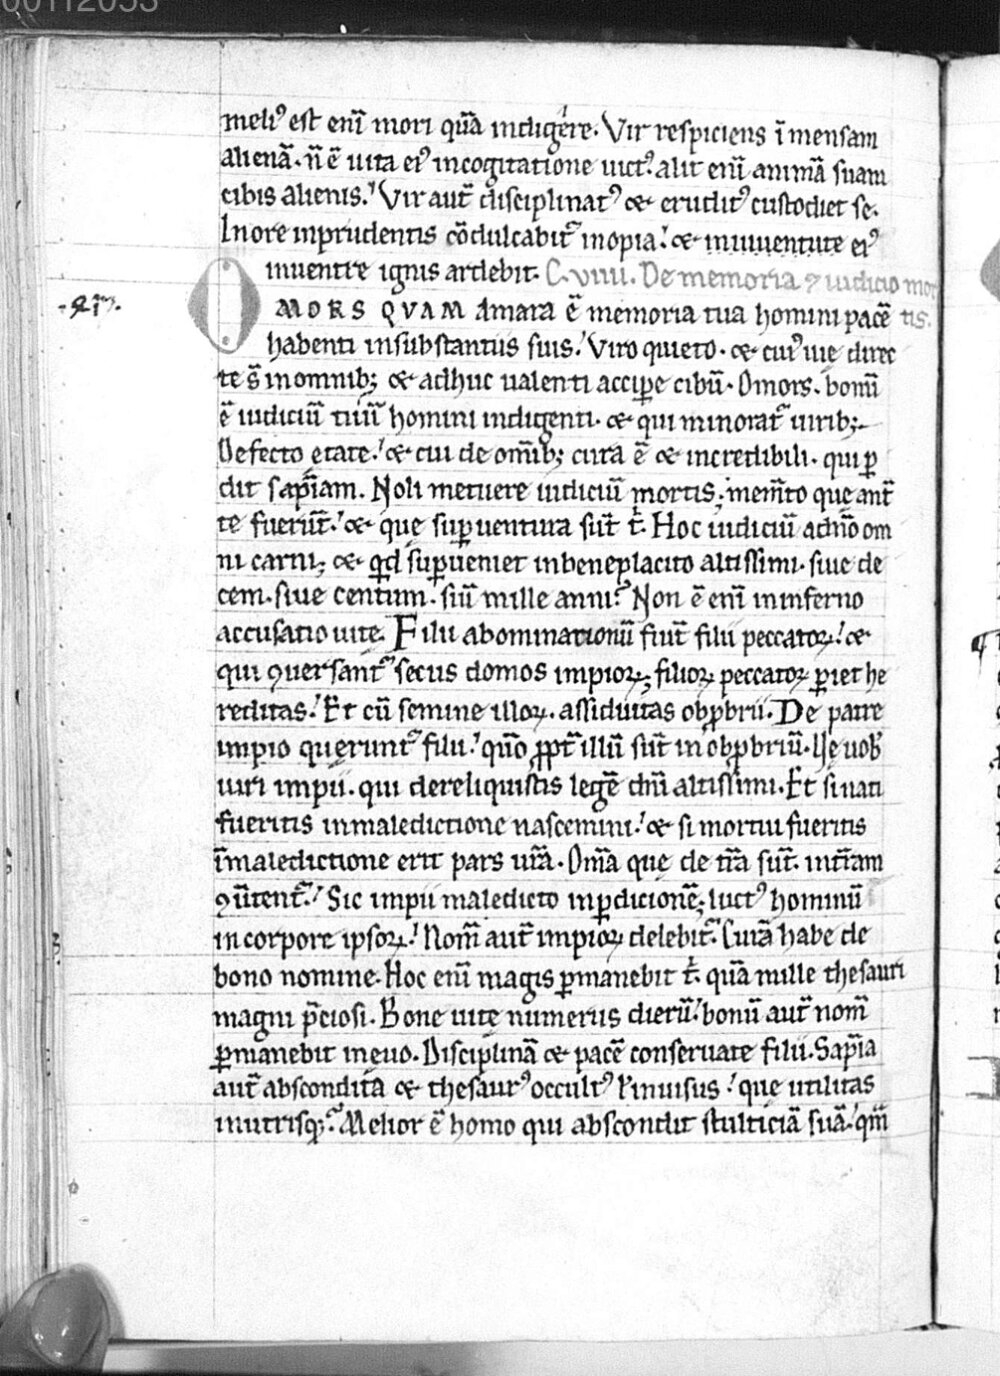 meliꝰ est eni᷑ mori quā indigere. Vir respiciens ī mensam
alienā. n̄ ē uita eiꝰ incogitatione uictꝰ. alit eni᷑ animā suam
cibis alienis. Vir aut̄ disciplinatꝰ ⁊ eruditꝰ custodiet se.
In ore inprudentis cōdulcabit᷑ inopia. ⁊ inuuentute eiꝰ
inuentre ignis ardebit. C. viiii. De memoria ⁊ iudicio mor
O MORS QVAM Amara ē memoria tua homini pacē tis.
habenti insubstantiis suis. Viro quieto. ⁊ cuiꝰ uię direc
te s̄ inomnib; ⁊ adhuc ualenti accipe cibū. O mors. bonū
ē iudiciū tuū homini indigenti. ⁊ qui minorat᷑ uirib;.
Defecto ętate. ⁊ cui de om̄ib; cura ē ⁊ incredibili. qui ꝑ
dit sap̄iam. Noli metuere iudiciū mortis; mem̄to que ant̄
te fuerūt. ⁊ que suꝑuentura sūt t᷑. Hoc iudiciū adn̄o om
ni carni; ⁊ qd̄ suꝑueniet inbeneplacito altissimi. siue de
cem. siue centum. siū mille anni. Non ē eni᷑ ininferno
accusatio uite. Filii abominationū fiūt filii peccatoꝝ. ⁊
qui ꝯuersant᷑ secus domos impioꝝ; filioꝝ peccatoꝝ ꝑiet he
reditas. Et cū semine illoꝝ. assiduitas obꝓbrii. De patre
impio querunt᷑ filii. qm̄o ꝓpt̄ illū sūt in obꝓbriū. Ve uob᷑
uiri impii. qui dereliquistis legē dn̄i altissimi. Et si nati
fueritis inmaledictione nascemini. ⁊ si mortui fueritis
īmaledictione erit pars ur̄a. Om̄a que de tr̄a sūt. int̄ram
ꝯūtent᷑. Sic impii maledicto inꝑdicionē; luctꝰ hominū
in corpore ipsoꝝ. Nom̄ aut̄ impioꝝ delebit᷑. Curā habe de
bono nomine. Hoc eni᷑ magis ꝑmanebit t᷑. quā mille thesauri
magni p̄ciosi. Bone uitę numerus dierū. bonū aut̄ nom̄
ꝑmanebit in euo. Disciplinā ⁊ pacē conseruate filii. Sap̄ia
aut̄ abscondita ⁊ thesaurꝰ occultꝰ ꝉ inuisus. que utilitas
inutrisq;. Melior ē homo qui abscondit stulticiā suā. qm̄